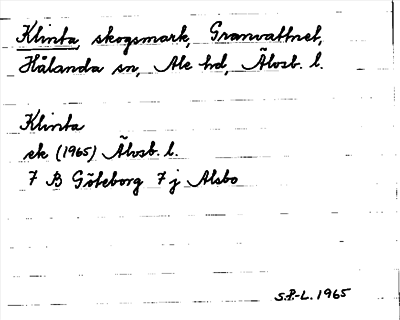 Klinta, skogsmark, Granvattnet,
Hålanda sn, Ale hd, Älvsb. l.
Klinta
sk (1965) Älvsb. l.
7 B Göteborg 7 j Alsbo
S.P.-L. 1965